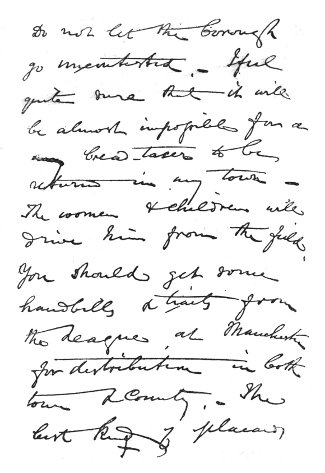 Do not let the borough
go uncontested. I feel
quite sure that it will
be almost impossible for a
bread taxer to be
returned in any town –
The women & children will
drive him from the field.
You should get some
handbills & tracts from
the League, at Manchester
for distribution in both
town & County. – The
best kind of placard